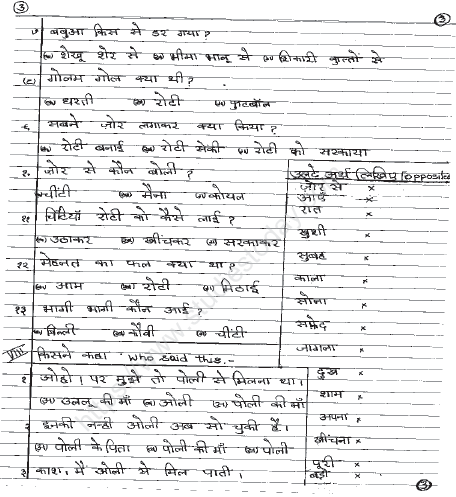 ③ ③
७ बबुआ किस से डर गया?
(अ) शेखू शेर से (ब) भीमा भालू से (स) शिकारी कुत्तों से
(८) गोलम गोल क्या थी?
(अ) धरती (ब) रोटी (स) फुटबॉल
९ सबने ज़ोर लगाकर क्या किया?
(अ) रोटी बनाई (ब) रोटी सेकी (स) रोटी को सरकाया
१० ज़ोर से कौन बोली?
चींटी मैना कोयल
११ चिटियाँ रोटी को कैसे लाई?
उठाकर खींचकर सरकाकर
१२ मेहनत का फल क्या था?
आम रोटी मिठाई
१३ भागी भागी कौन आई?
बिल्ली कौवी चींटी
VIII किसने कहा Who said this:-
१ ओहो! पर मुझे तो पोली से मिलना था।
उल्लू की माँ ओली पोली की माँ
२ इनकी नन्ही ओली अब सो चुकी है।
पोली के पिता पोली की माँ पोली
३ काश, मैं ओली से मिल पाती।
उल्टे अर्थ लिखिए (opposites)
ज़ोर से ×
आएँ ×
रात ×
खुशी ×
सुबह ×
काला ×
सोना ×
सफ़ेद ×
जागना ×
दुख ×
शाम ×
अपना ×
खींचना ×
पूरी ×
बड़ी ×
③